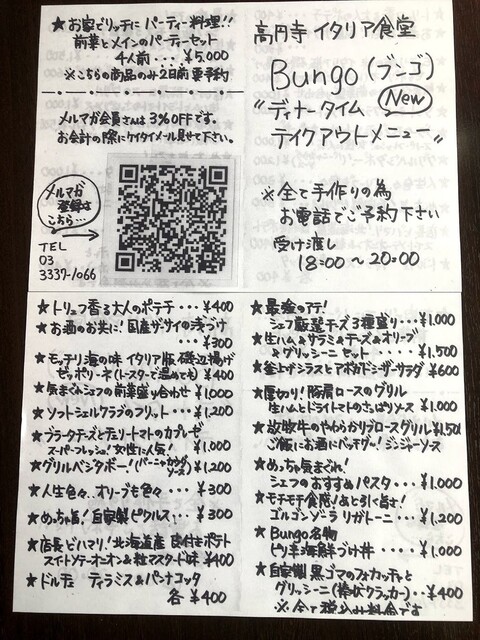 ★お家でリッチにパーティー料理!!
前菜とメインのパーティーセット
4人前・・・¥5,000
※こちらの商品のみ2日前要予約
メルマガ会員さんは3%OFFです。
お会計の際にケイタイメール見せて下さい。
メルマガ
登録は
こちら…
TEL
03
3337-1066
高円寺 イタリア食堂
Bungo (ブンゴ)
New
"ディナータイム
テイクアウトメニュー"
※全て手作りの為
お電話でご予約下さい
受け渡し
18:00~20:00
★トリュフ香る大人のポテチ・・・¥400
★お酒のお共に!国産ザーサイの浅づけ
・・・¥300
★モッチリ海の味 イタリア版磯辺揚げ
ゼッポリーネ(トースターで温めても)¥400
★気まぐれシェフの前菜盛り合わせ¥1,000
★ソフトシェルクラブのフリット・・・¥1,200
★ブラータチーズとデミリートマトのカプレーゼ
スーパーフレッシュ!女性に人気!¥1,000
★グリルベジタボー!(バーニャカウダソース)¥1,200
★人生色々、オリーブも色々・・・¥300
★めっちゃ旨!自家製ピクルス・・・¥300
★店長ドハマリ!北海道産 皮付ポテト
スイートサワーオニオン&粒マスタード味¥400
★ドルチェ ティラミス&パンナコッタ
各¥400
★最強のアテ!
シェフ厳選チーズ3種盛り・・・¥1,000
★生ハム&サラミ&チーズ&オリーブ
&グリッシーニセット・・・・¥1,500
★釜上げシラスとアボカドシーザーサラダ¥600
★厚切り!豚肩ロースのグリル
生ハムとドライトマトのさっぱりソース¥1,000
★放牧牛のやわらかリブロースグリル¥1,501
ご飯にお酒にバッチグー!ジンジャーソース
★めっちゃ気まぐれ!
シェフのおすすめパスタ・・・¥1,000
★モチモチ食感!あと引く旨さ!
ゴルゴンゾーラ リガトーニ・・・¥1,200
★Bungo名物
ピリ辛海鮮づけ丼・・・・¥1,000
★自家製黒ゴマのフォカッチャと
グリッシーニ(棒状クラッカー)・・¥400
※全て税込み料金です